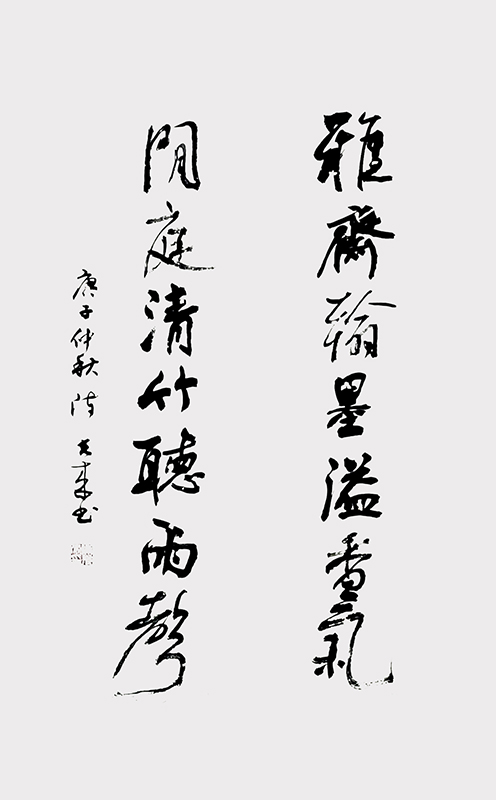 雅齋翰墨溢香氣
閒庭清竹聽雨聲
庚子仲秋 书